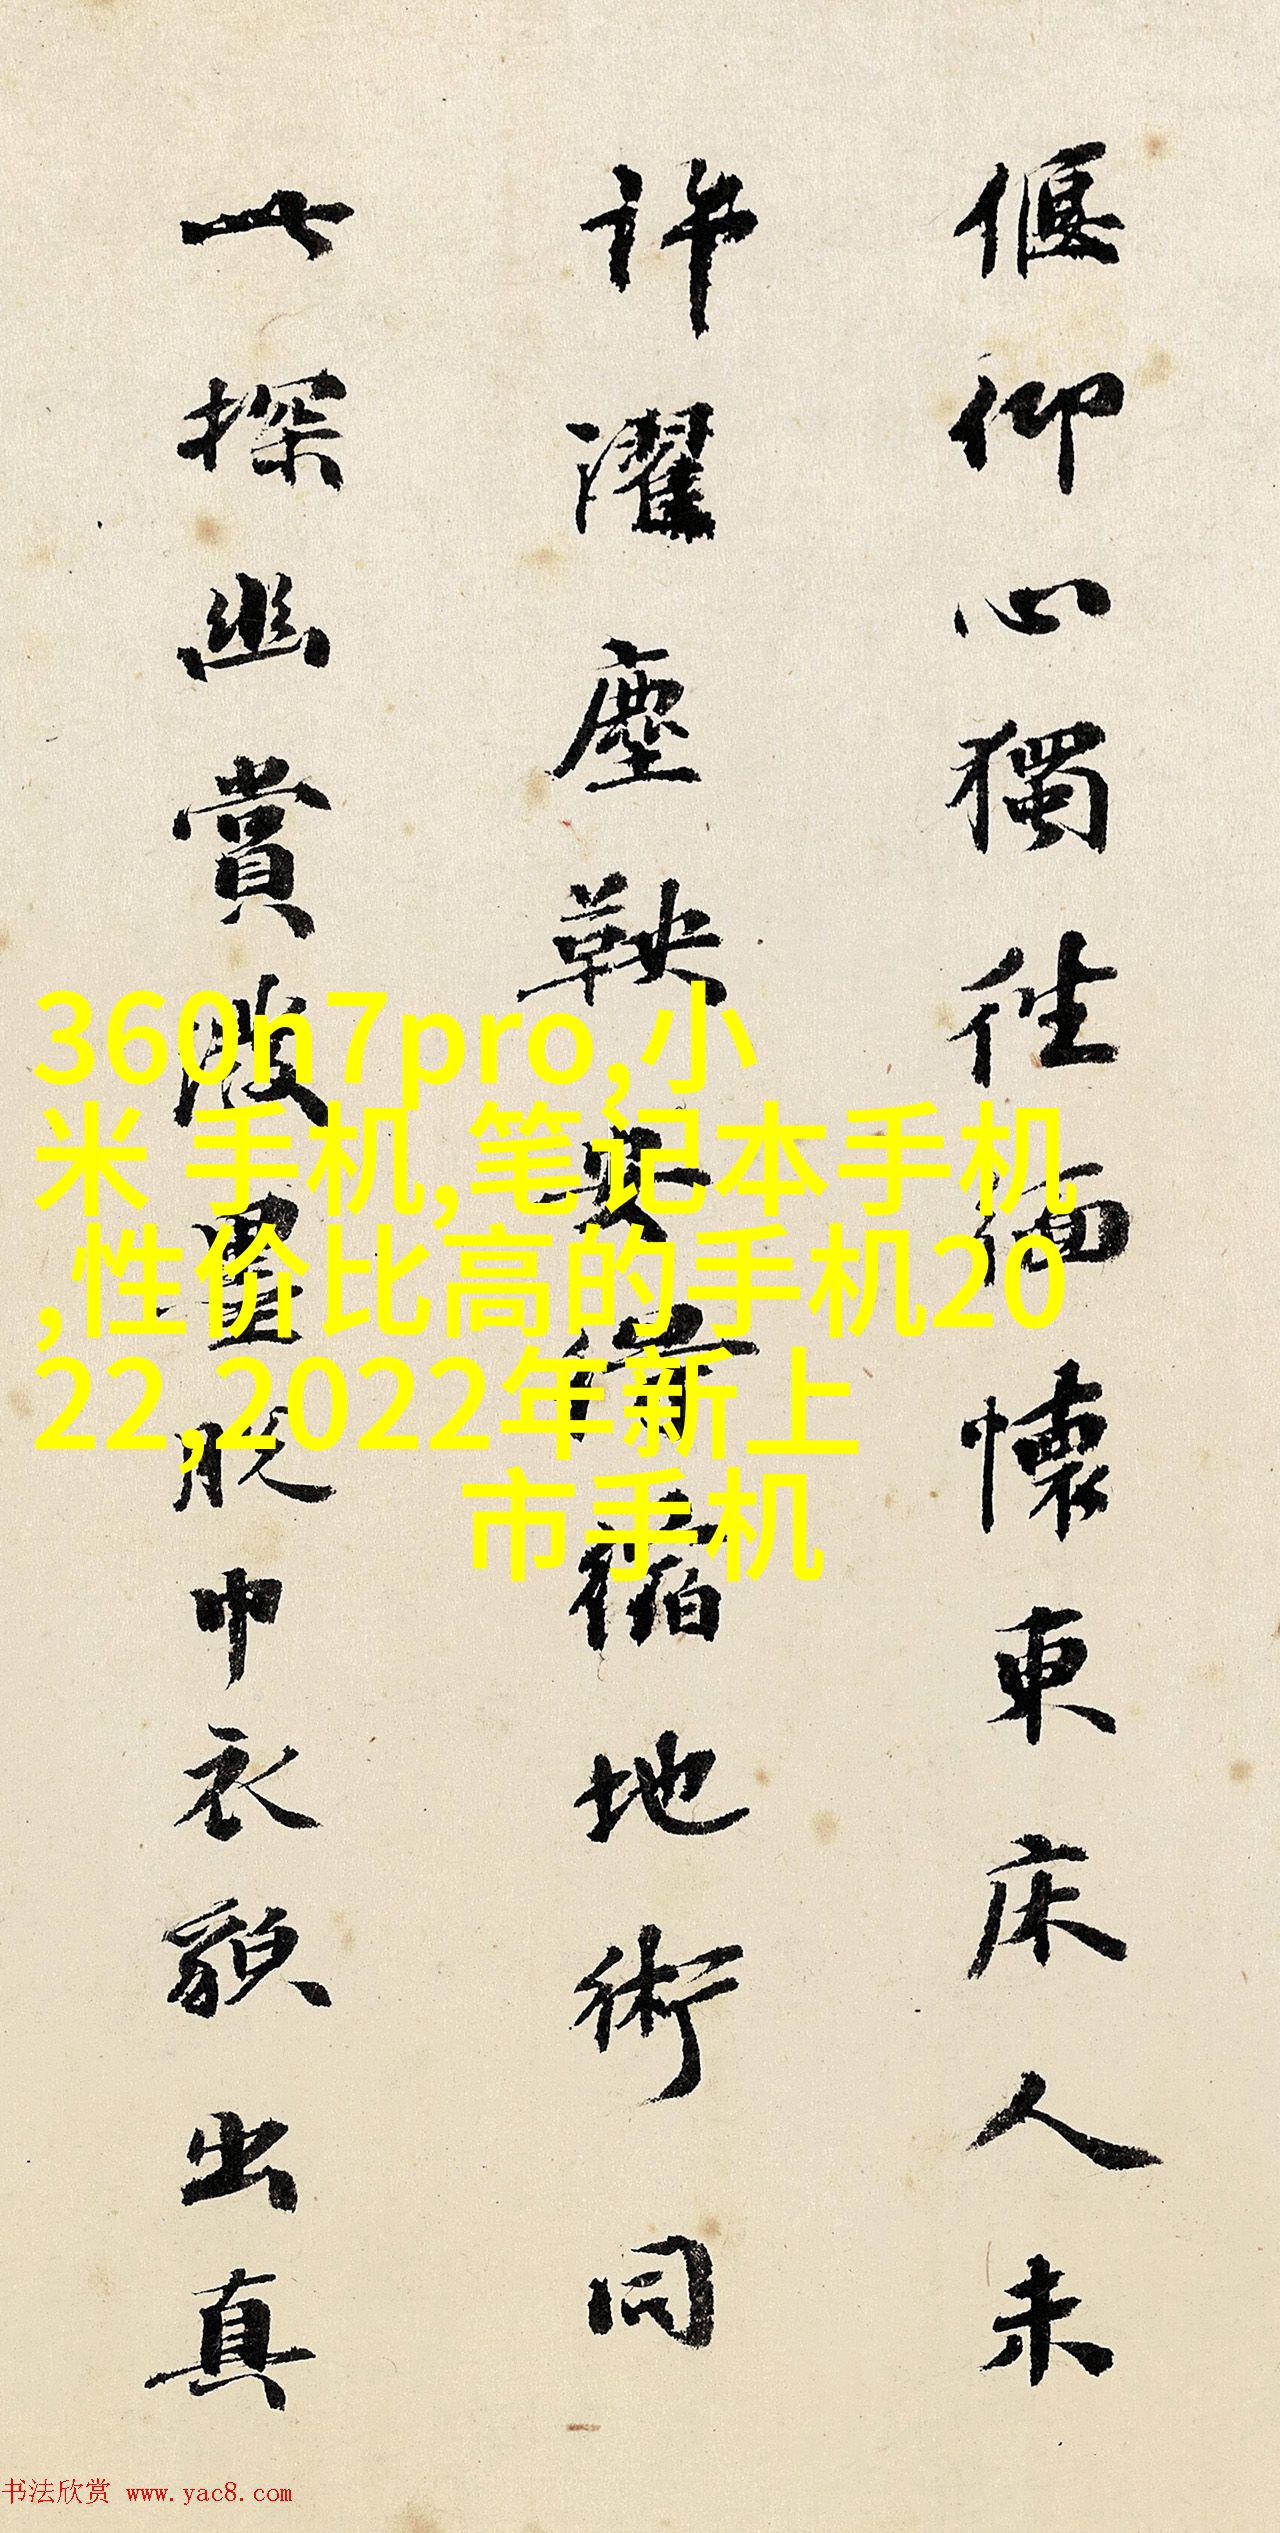 偃仰心獨往緬懷東床人未
許濯塵鞅安得循地術同
一探幽賞散置脱巾衣貌出真
360n7pro,小
米 手机,笔记本手机
,性价比高的手机20
22,2022年新上
市手机
书法欣赏 www.yac8.com